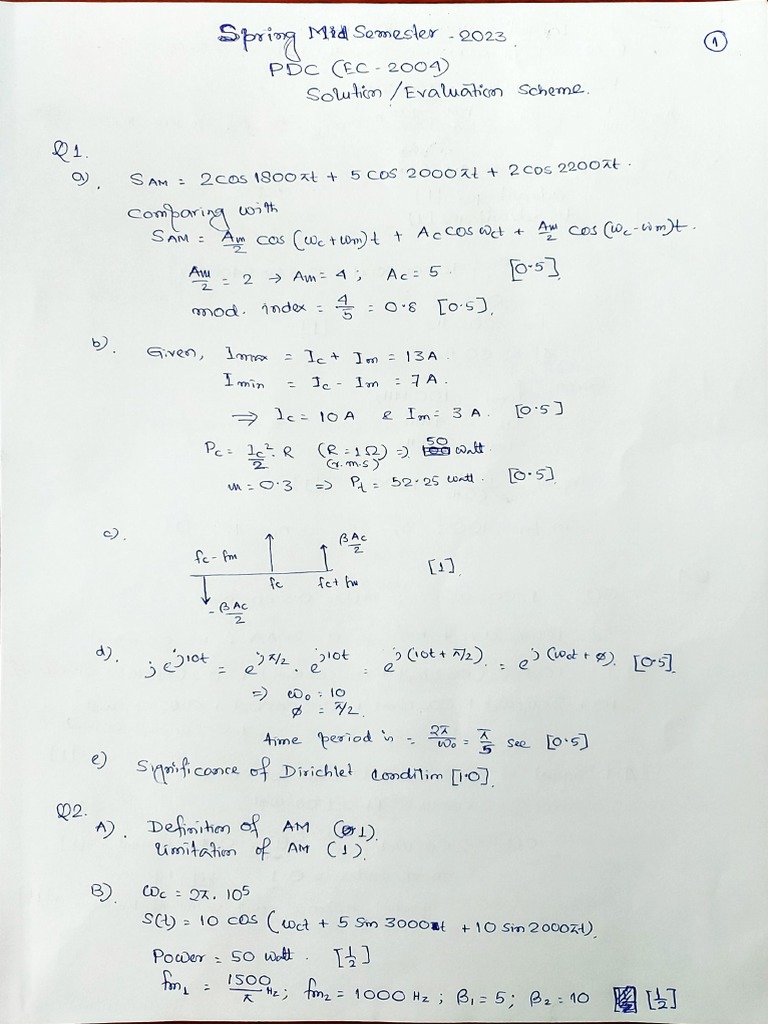 Spring Mid Semester - 2023
①
PDC (EC - 2004)
Solution / Evaluation Scheme.
Q1.
a). S_AM = 2cos 1800πt + 5 cos 2000πt + 2 cos 2200πt.
comparing with
S_AM = Am/2 cos (ωc + ωm)t + Ac cos ωct + Am/2 cos (ωc - ωm)t.
Am/2 = 2 → Am = 4 ; Ac = 5. [0.5]
mod. index = 4/5 = 0.8 [0.5].
b). Given, Imax = Ic + Im = 13A.
Imin = Ic - Im = 7A.
⇒ Ic = 10A & Im = 3A. [0.5]
Pc = Ic²/2 . R (R = 1Ω) ⇒ 50 watt.
(r.m.s)
m = 0.3 ⇒ Pt = 52.25 watt. [0.5].
c).
βAc/2
fc - fm
fc fc + fm [1].
- βAc/2
d). j e^j10t = e^jπ/2 . e^j10t = e^j(10t + π/2). = e^j(ω0t + ø). [0.5].
⇒ ω0 = 10
ø = π/2.
time period is = 2π/ω0 = π/5 sec [0.5]
e) Significance of Dirichlet condition [1.0].
Q2.
A). Definition of AM (1).
Limitation of AM (1).
B). ωc = 2π. 10⁵
S(t) = 10 cos (ωct + 5 sin 3000t + 10 sin 2000πt).
Power = 50 watt. [1/2]
fm1 = 1500/π Hz ; fm2 = 1000 Hz ; β1 = 5 ; β2 = 10 [1/2]